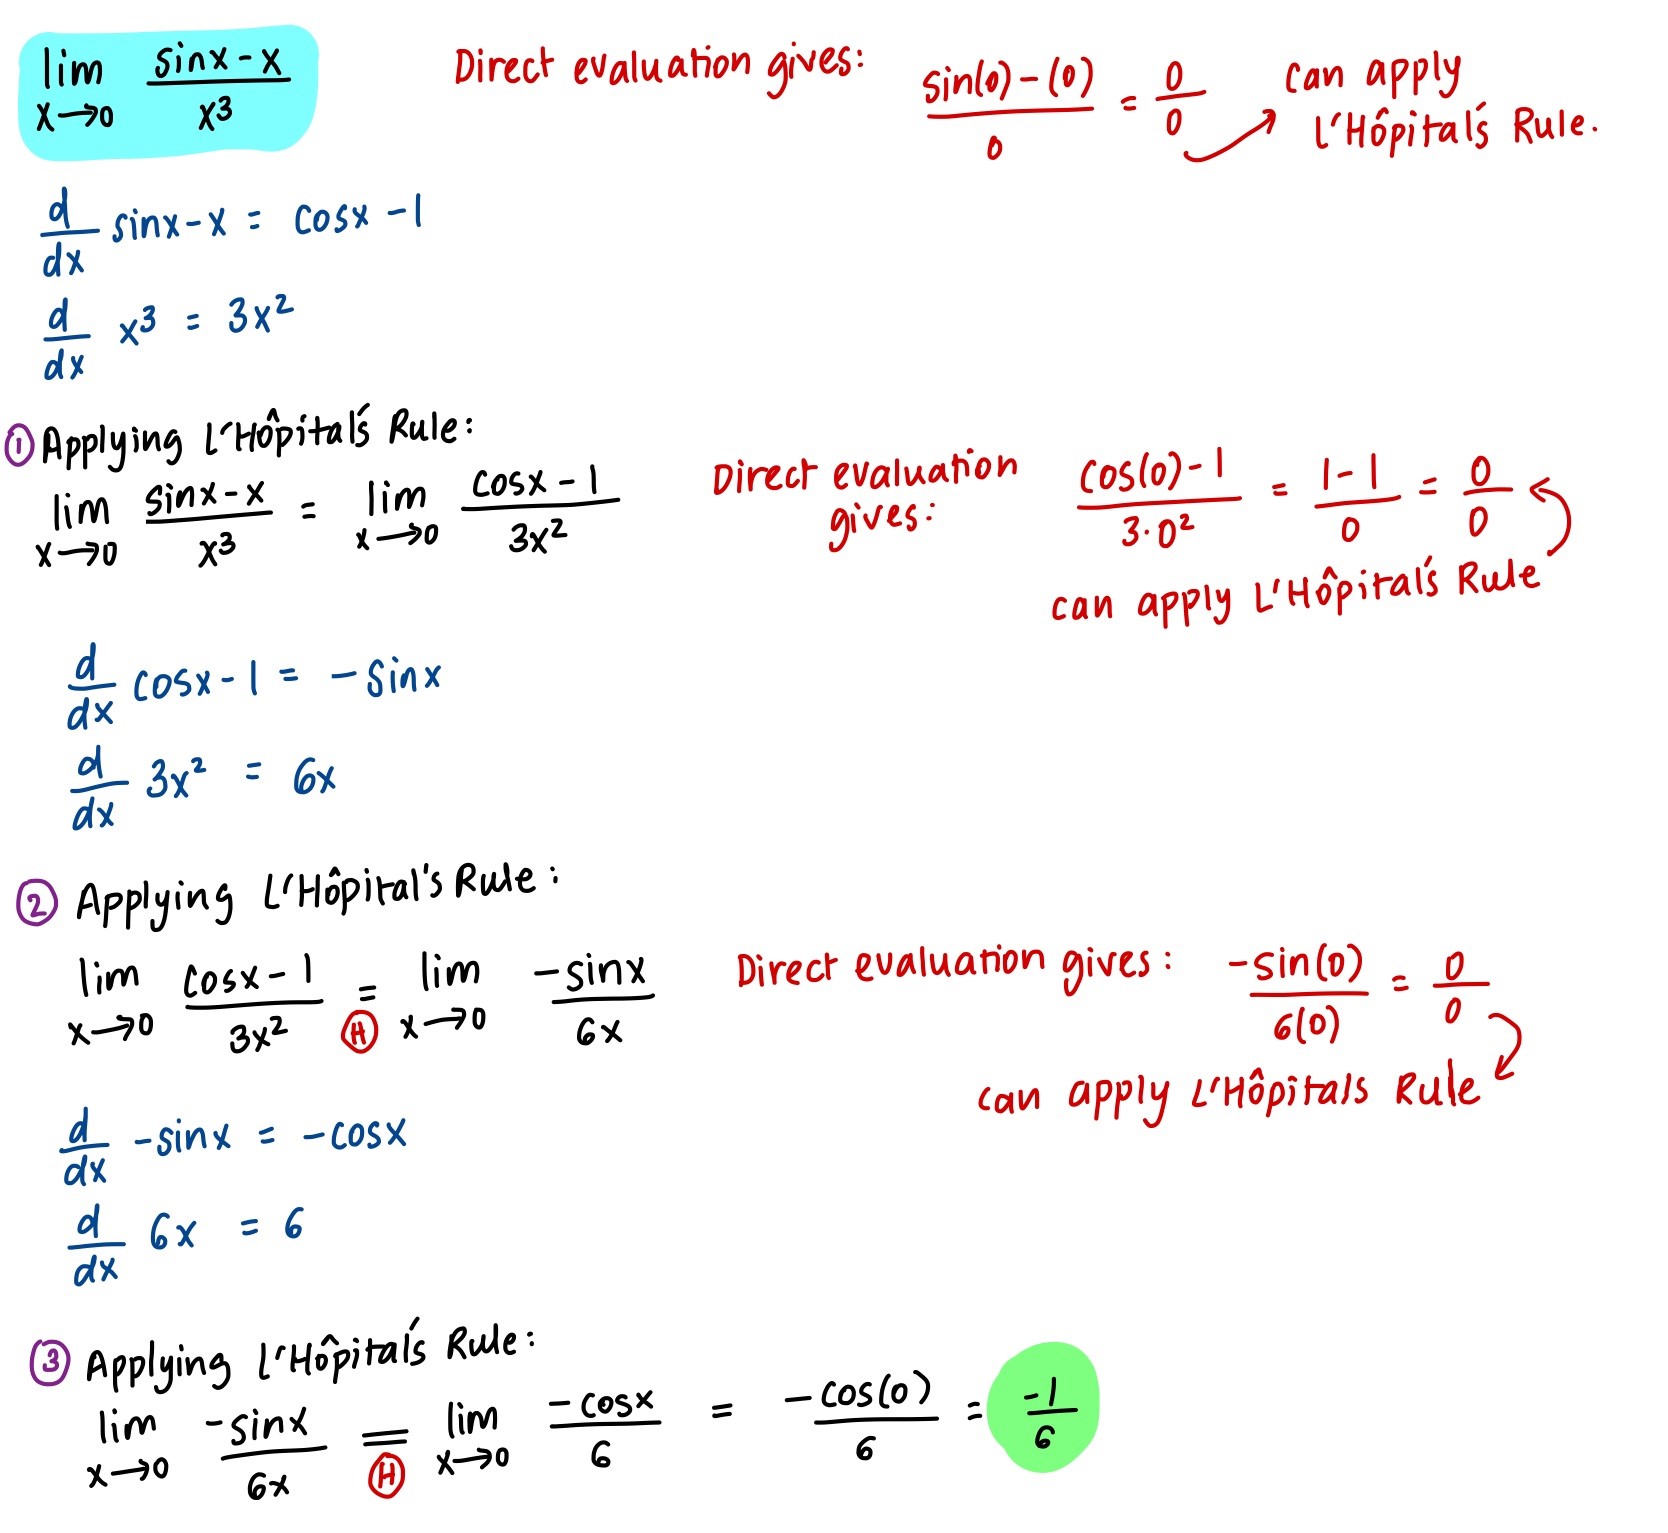 lim x→0 (sinx - x)/x³   Direct evaluation gives: (sin(0) - (0))/0 = 0/0 → can apply
L'Hôpital's Rule.
d/dx sinx - x = cosx - 1
d/dx x³ = 3x²
① Applying L'Hôpital's Rule:
lim x→0 (sinx - x)/x³ = lim x→0 (cosx - 1)/3x²   Direct evaluation gives: (cos(0) - 1)/(3·0²) = (1 - 1)/0 = 0/0
can apply L'Hôpital's Rule
d/dx cosx - 1 = -sinx
d/dx 3x² = 6x
② Applying L'Hôpital's Rule:
lim x→0 (cosx - 1)/3x² = Ⓗ lim x→0 -sinx/6x   Direct evaluation gives: -sin(0)/6(0) = 0/0
can apply L'Hôpitals Rule
d/dx -sinx = -cosx
d/dx 6x = 6
③ Applying L'Hôpital's Rule:
lim x→0 -sinx/6x = Ⓗ lim x→0 -cosx/6 = -cos(0)/6 = -1/6